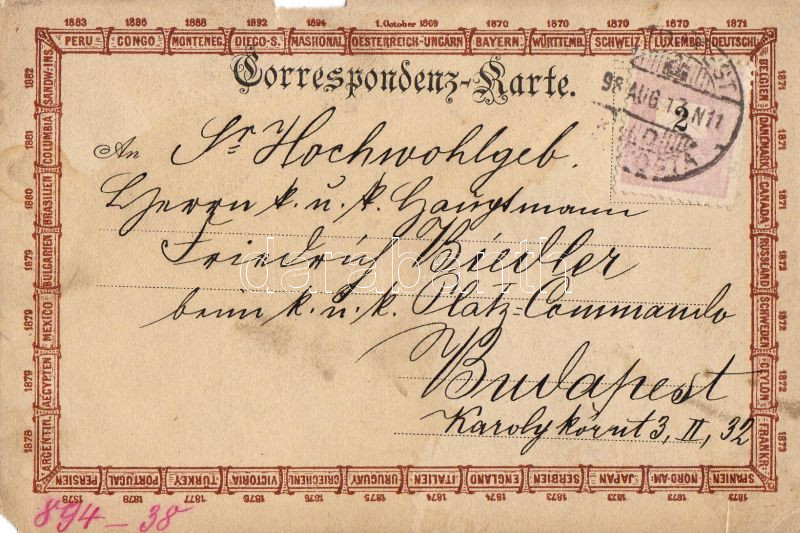 1883 1886 1888 1892 1894 1. October 1869 1870 1870 1870 1870 1871
PERU CONGO MONTENEG. DIEGO-S. NASHONAL OESTERREICH-UNGARN BAYERN WÜRTTEMB. SCHWEIZ LUXEMBG DEUTSCHL.
Correspondenz-Karte.
98 AUG 13 N11
2
POSTA
An Sr Hochwohlgeb.
Herrn k. u. k. Hauptmann
Friedrich Biedler
beim k. u. k. Platz-Commando
Budapest
Karolykörut 3, II, 32
darabanth
1882 SANDW.-INS.
1881 COLUMBIA
1880 BRASILIEN
1879 BULGARIEN
1879 MEXICO
1879 AEGYPTEN
1878 ARGENTIN.
BELGIEN 1871
DÄNEMARK 1871
CANADA 1871
RUSSLAND 1872
SCHWEDEN 1872
CEYLON 1872
FRANKR. 1873
PERSIEN PORTUGAL TÜRKEY VICTORIA GRIECHENL URUGUAY ITALIEN ENGLAND SERBIEN JAPAN NORD-AM. SPANIEN
1878 1878 1877 1876 1876 1875 1874 1874 1873 1873 1873 1873
894-38